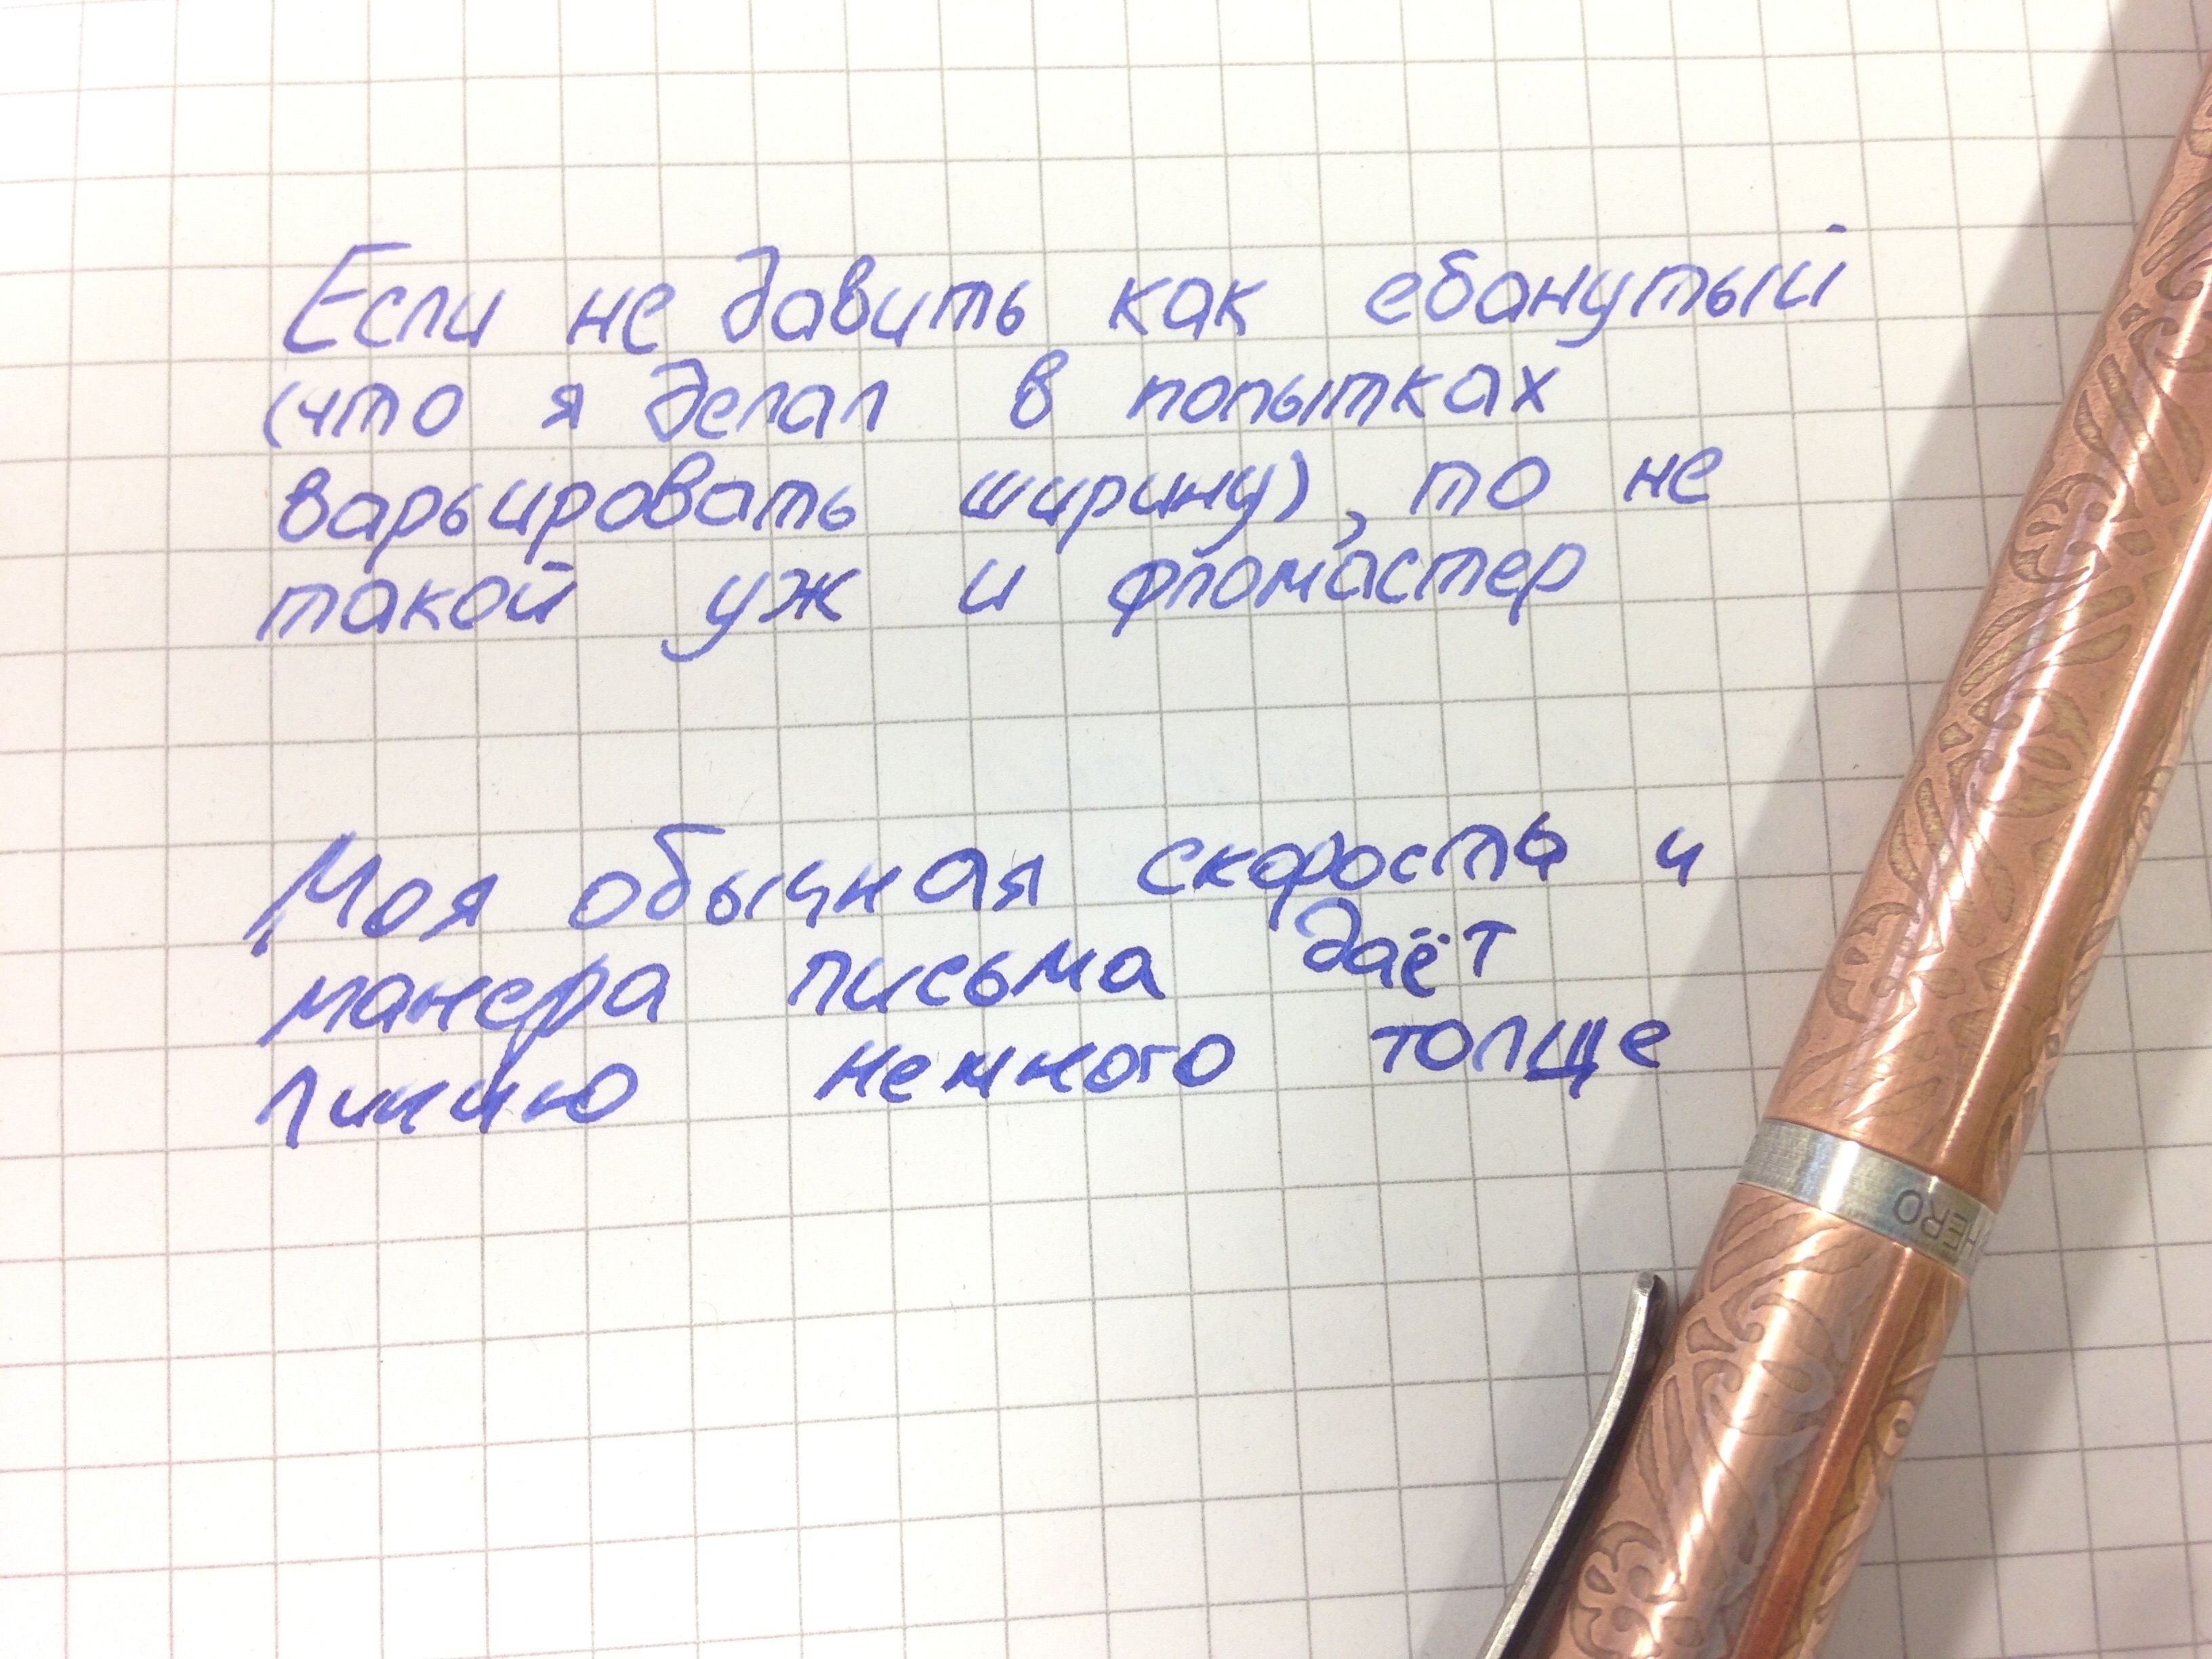 Если не давить как ебанутый
(что я делал в попытках
варьировать ширину), то не
такой уж и фломастер
Моя обычная скорость и
манера письма даёт
линию немного толще
HERO